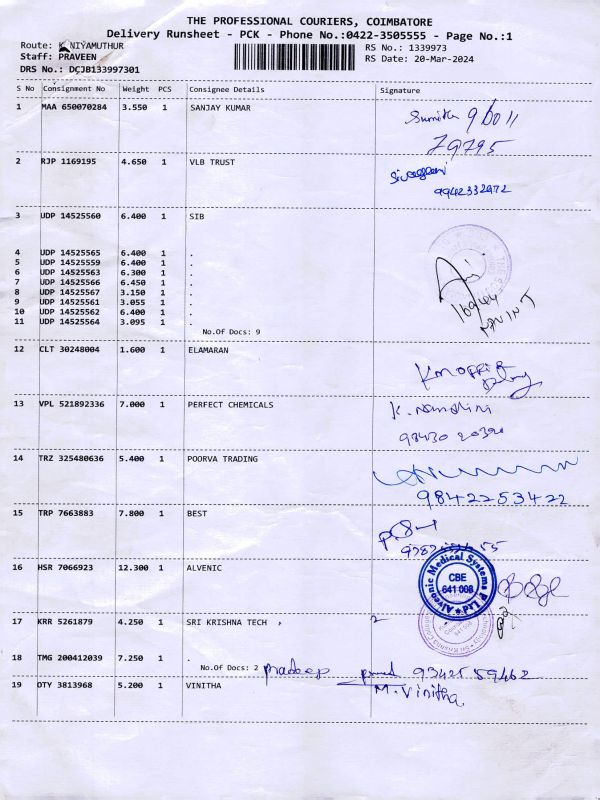 THE PROFESSIONAL COURIERS, COIMBATORE
Delivery Runsheet - PCK - Phone No.:0422-3505555 - Page No.:1
Route: K NIYAMUTHUR
RS No.: 1339973
Staff: PRAVEEN
RS Date: 20-Mar-2024
DRS No.: DCJB133997301
S No Consignment No Weight PCS Consignee Details Signature
1 MAA 650070284 3.550 1 SANJAY KUMAR
79795
2 RJP 1169195 4.650 1 VLB TRUST
9942332972
3 UDP 14525560 6.400 1 SIB
4 UDP 14525565 6.400 1 .
5 UDP 14525559 6.400 1 .
6 UDP 14525563 6.300 1 .
7 UDP 14525566 6.450 1 .
8 UDP 14525567 3.150 1 .
9 UDP 14525561 3.055 1 .
10 UDP 14525562 6.400 1 .
11 UDP 14525564 3.095 1 .
No.Of Docs: 9
12 CLT 30248004 1.600 1 ELAMARAN
13 VPL 521892336 7.000 1 PERFECT CHEMICALS K. Nandhini
14 TRZ 325480636 5.400 1 POORVA TRADING
9842253422
15 TRP 7663883 7.800 1 BEST
16 HSR 7066923 12.300 1 ALVENIC
Alveonic Medical Systems P. Ltd
CBE
641 008
17 KRR 5261879 4.250 1 SRI KRISHNA TECH ,
18 TMG 200412039 7.250 1 .
No.Of Docs: 2 pradeep 9342559462
19 OTY 3813968 5.200 1 VINITHA M. Vinitha